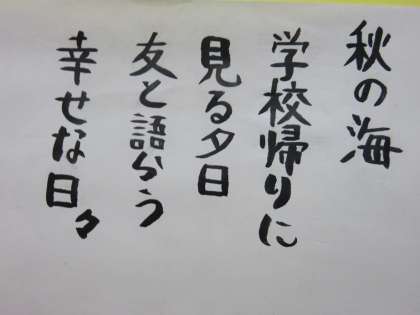 秋の海
学校帰りに
見る夕日
友と語らう
幸せな日々